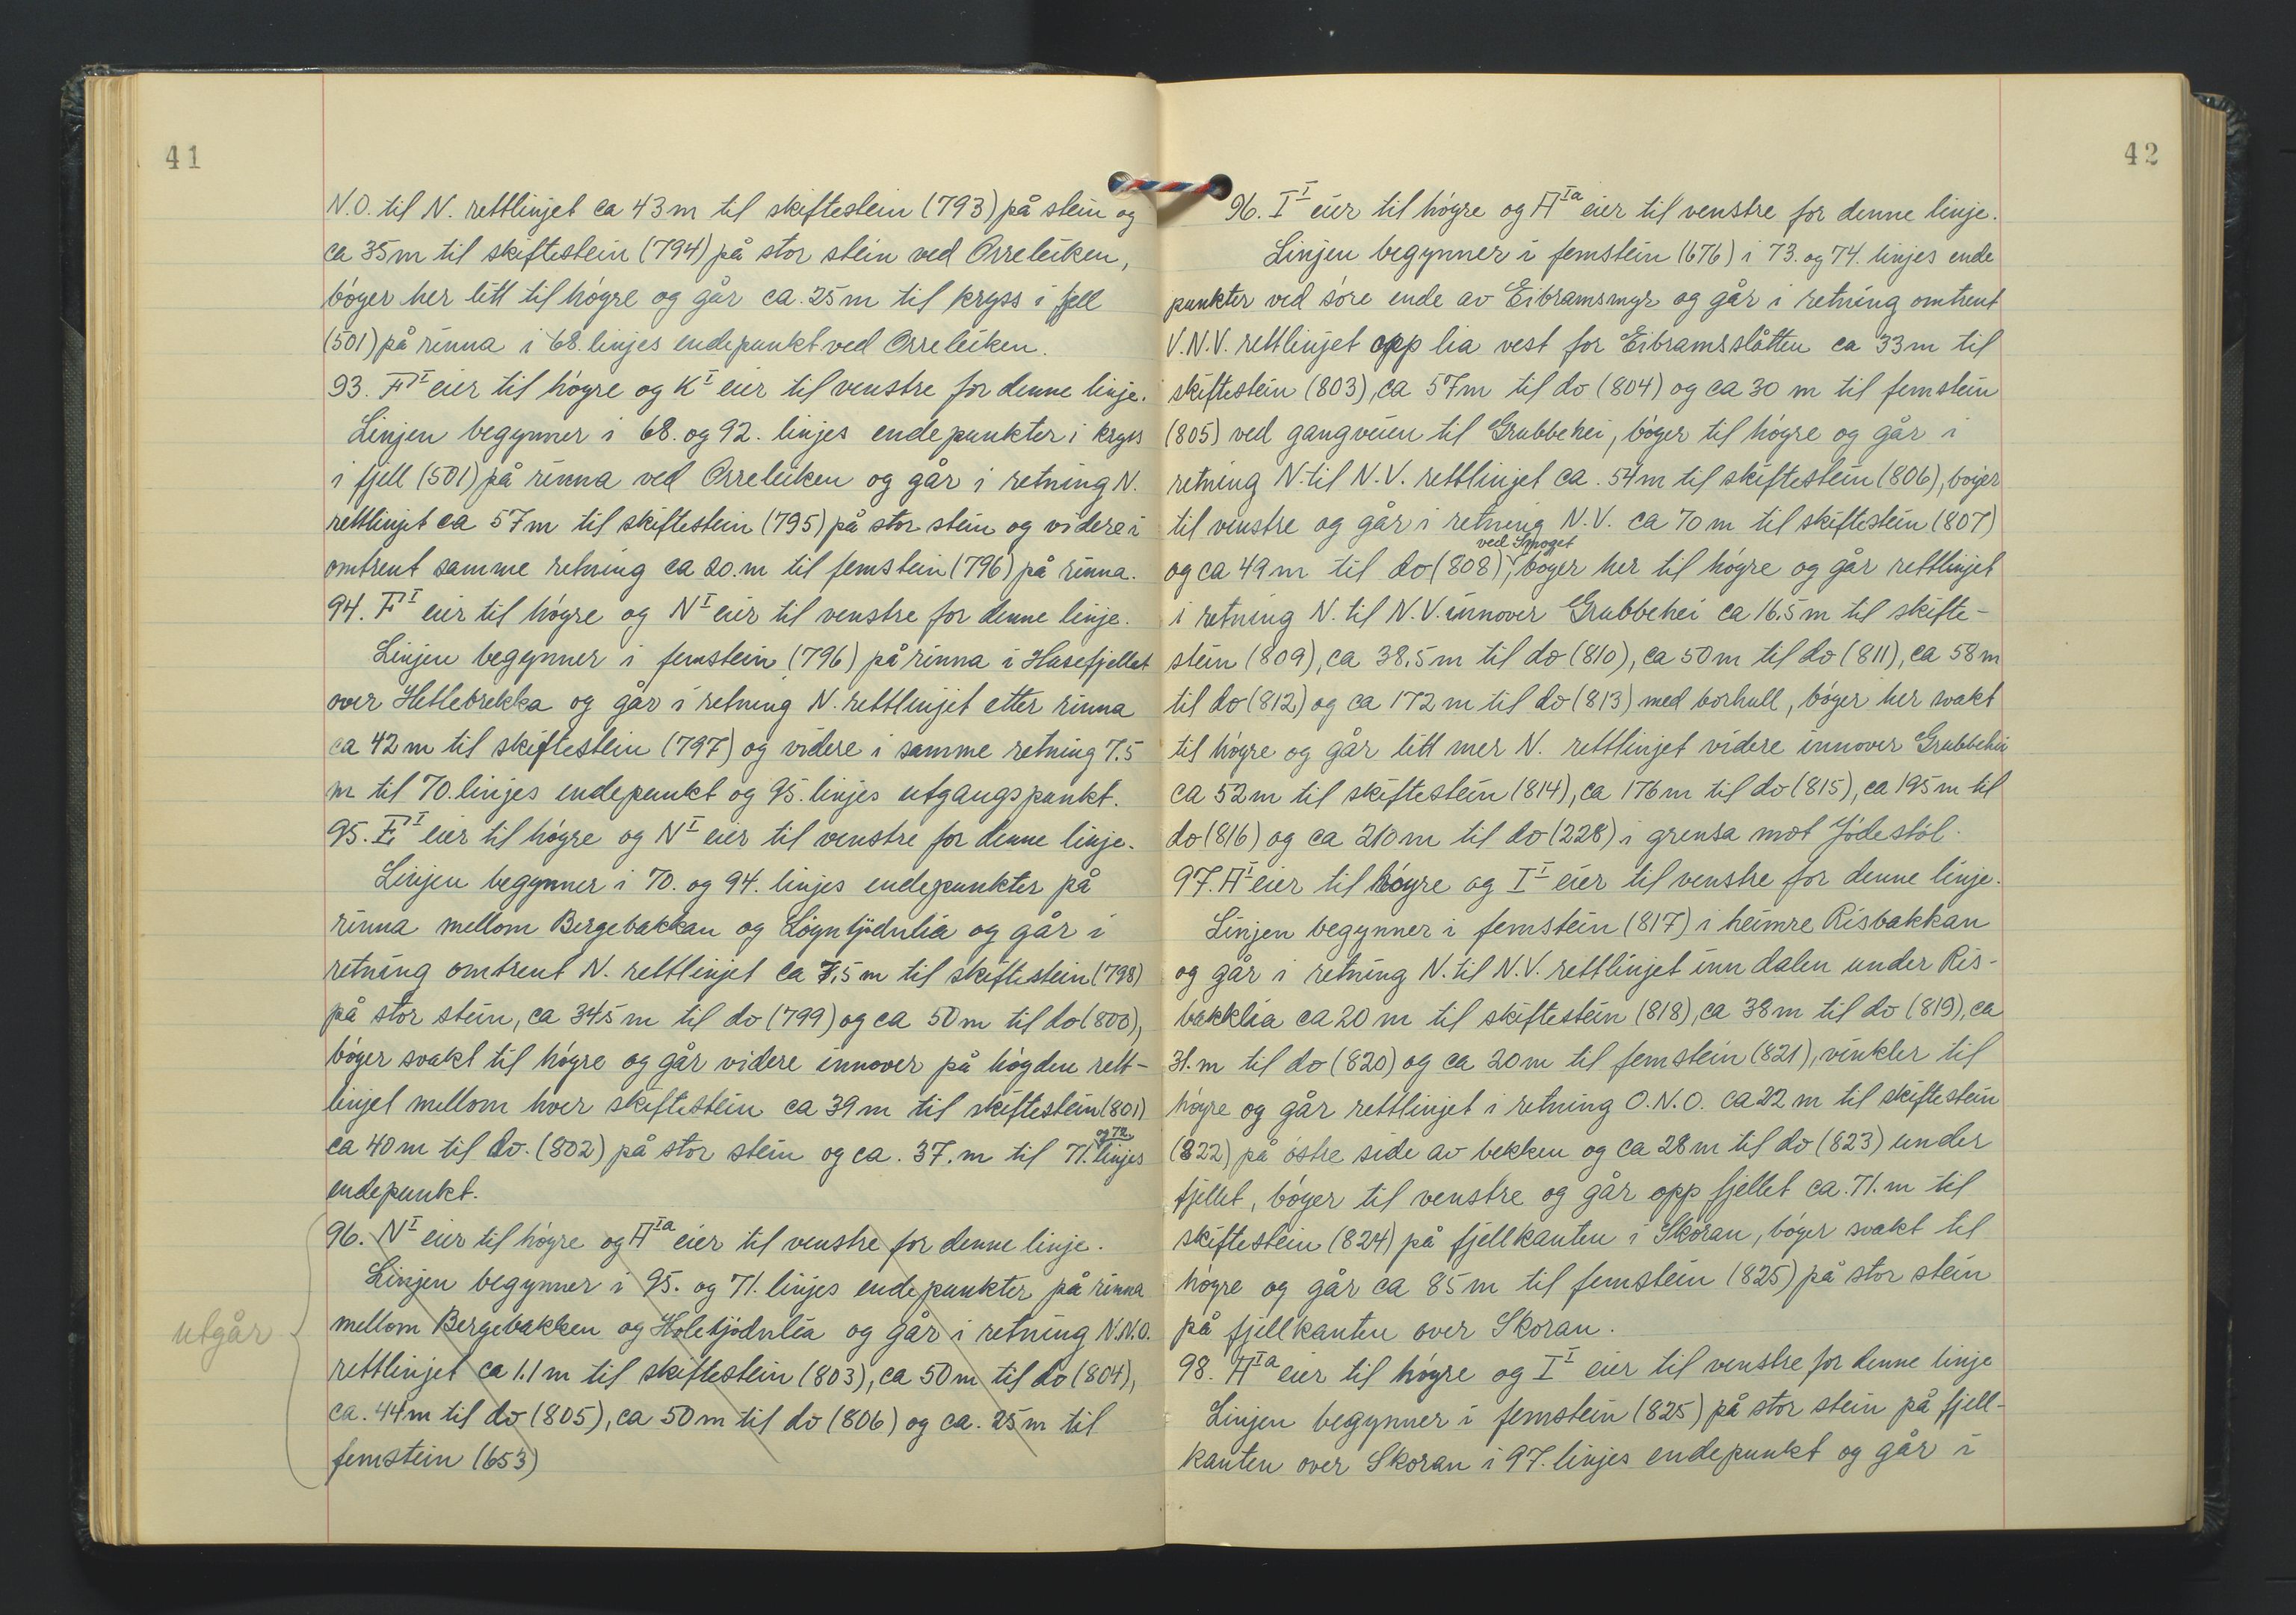 41
N.O. til N. rettlinjet ca 43 m til skiftestein (793) på stein og
ca 35 m til skiftestein (794) på stor stein ved Orreleiken,
bóger her litt til hógre og går ca. 25 m til kryss i fjell
(501) på rinna i 68. linjes endepunkt ved Orreleiken.
93. F^I eier til hógre og K^I eier til venstre for denne linje.
Linjen begynner i 68. og 92. linjes endepunkter i kryss
i fjell (501) på rinna ved Orreleiken og går i retning N.
rettlinjet ca 57 m til skiftestein (795) på stor stein og videre i
omtrent samme retning ca 20. m til femstein (796) på rinna.
94. F^I eier til hógre og N^I eier til venstre for denne linje.
Linjen begynner i femstein (796) på rinna i Husefjellet
over Hellebrekka og går i retning N. rettlinjet etter rinna
ca 42 m til skiftestein (797) og videre i samme retning 7.5
m til 70. linjes endepunkt og 95. linjes utgangspunkt.
95. E^I eier til hógre og N^I eier til venstre for denne linje.
Linjen begynner i 70. og 94. linjes endepunkter på
rinna mellom Bergebakkan og Lógntjódnlia og går i
retning omtrent N. rettlinjet ca 7,5 m til skiftestein (798)
på stor stein, ca 34,5 m til do (799) og ca 50 m til do (800),
bóger svakt til hógre og går videre innover på hógden rett-
linjet mellom hver skiftestein ca 39 m til skiftestein (801)
ca 40 m til do. (802) på stor stein og ca. 37. m til 71. og 72. linjes
endepunkt.
96. N^I eier til hógre og A^Ia eier til venstre for denne linje.
Linjen begynner i 95. og 71. linjes endepunkter på rinna
mellom Bergebakken og Holetjódnlia og går i retning N.N.O.
utgår
rettlinjet ca 11 m til skiftestein (803), ca 50 m til do (804),
ca. 44 m til do (805), ca 50 m til do (806) og ca. 25 m til
femstein (653)
42
96. I^I eier til hógre og A^Ia eier til venstre for denne linje.
Linjen begynner i femstein (676) i 73. og 74. linjes ende
punkter ved sóre ende av Eibramsmyr og går i retning omtrent
V.N.V. rettlinjet opp lia vest for Eibramsslåtten ca 33 m til
skiftestein (803), ca 57 m til do (804) og ca 30 m til femstein
(805) ved gangveien til Grubbehei, bóger til hógre og går i
retning N. til N.V. rettlinjet ca. 54 m til skiftestein (806), bóger
til venstre og går i retning N.V. ca 70 m til skiftestein (807)
og ca 49 m til do (808) ved Smoget, bóger her til hógre og går rettlinjet
i retning N. til N.V. innover Grubbehei ca 16.5 m til skifte-
stein (809), ca 38,5 m til do (810), ca 50 m til do (811), ca 58 m
til do (812) og ca 172 m til do (813) med borhull, bóger her svakt
til hógre og går litt mer N. rettlinjet videre innover Grubbehei
ca 52 m til skiftestein (814), ca 176 m til do (815), ca 195 m til
do (816) og ca 210 m til do (228) i grensa mot Jódestól.
97. A^I eier til hógre og I^I eier til venstre for denne linje.
Linjen begynner i femstein (817) i heimre Risbakkan
og går i retning N. til N.V. rettlinjet inn dalen under Ris-
bakklia ca 20 m til skiftestein (818), ca 38 m til do (819), ca
31. m til do (820) og ca 20 m til femstein (821), vinkler til
hógre og går rettlinjet i retning O.N.O. ca 22 m til skiftestein
(822) på óstre side av bekken og ca 28 m til do (823) under
fjellet, bóger til venstre og går opp fjellet ca. 71. m til
skiftestein (824) på fjellkanten i Skoran, bóger svakt til
hógre og går ca 85 m til femstein (825) på stor stein
på fjellkanten over Skoran.
98. A^Ia eier til hógre og I^I eier til venstre for denne linje
Linjen begynner i femstein (825) på stor stein på fjell-
kanten over Skoran i 97. linjes endepunkt og går i